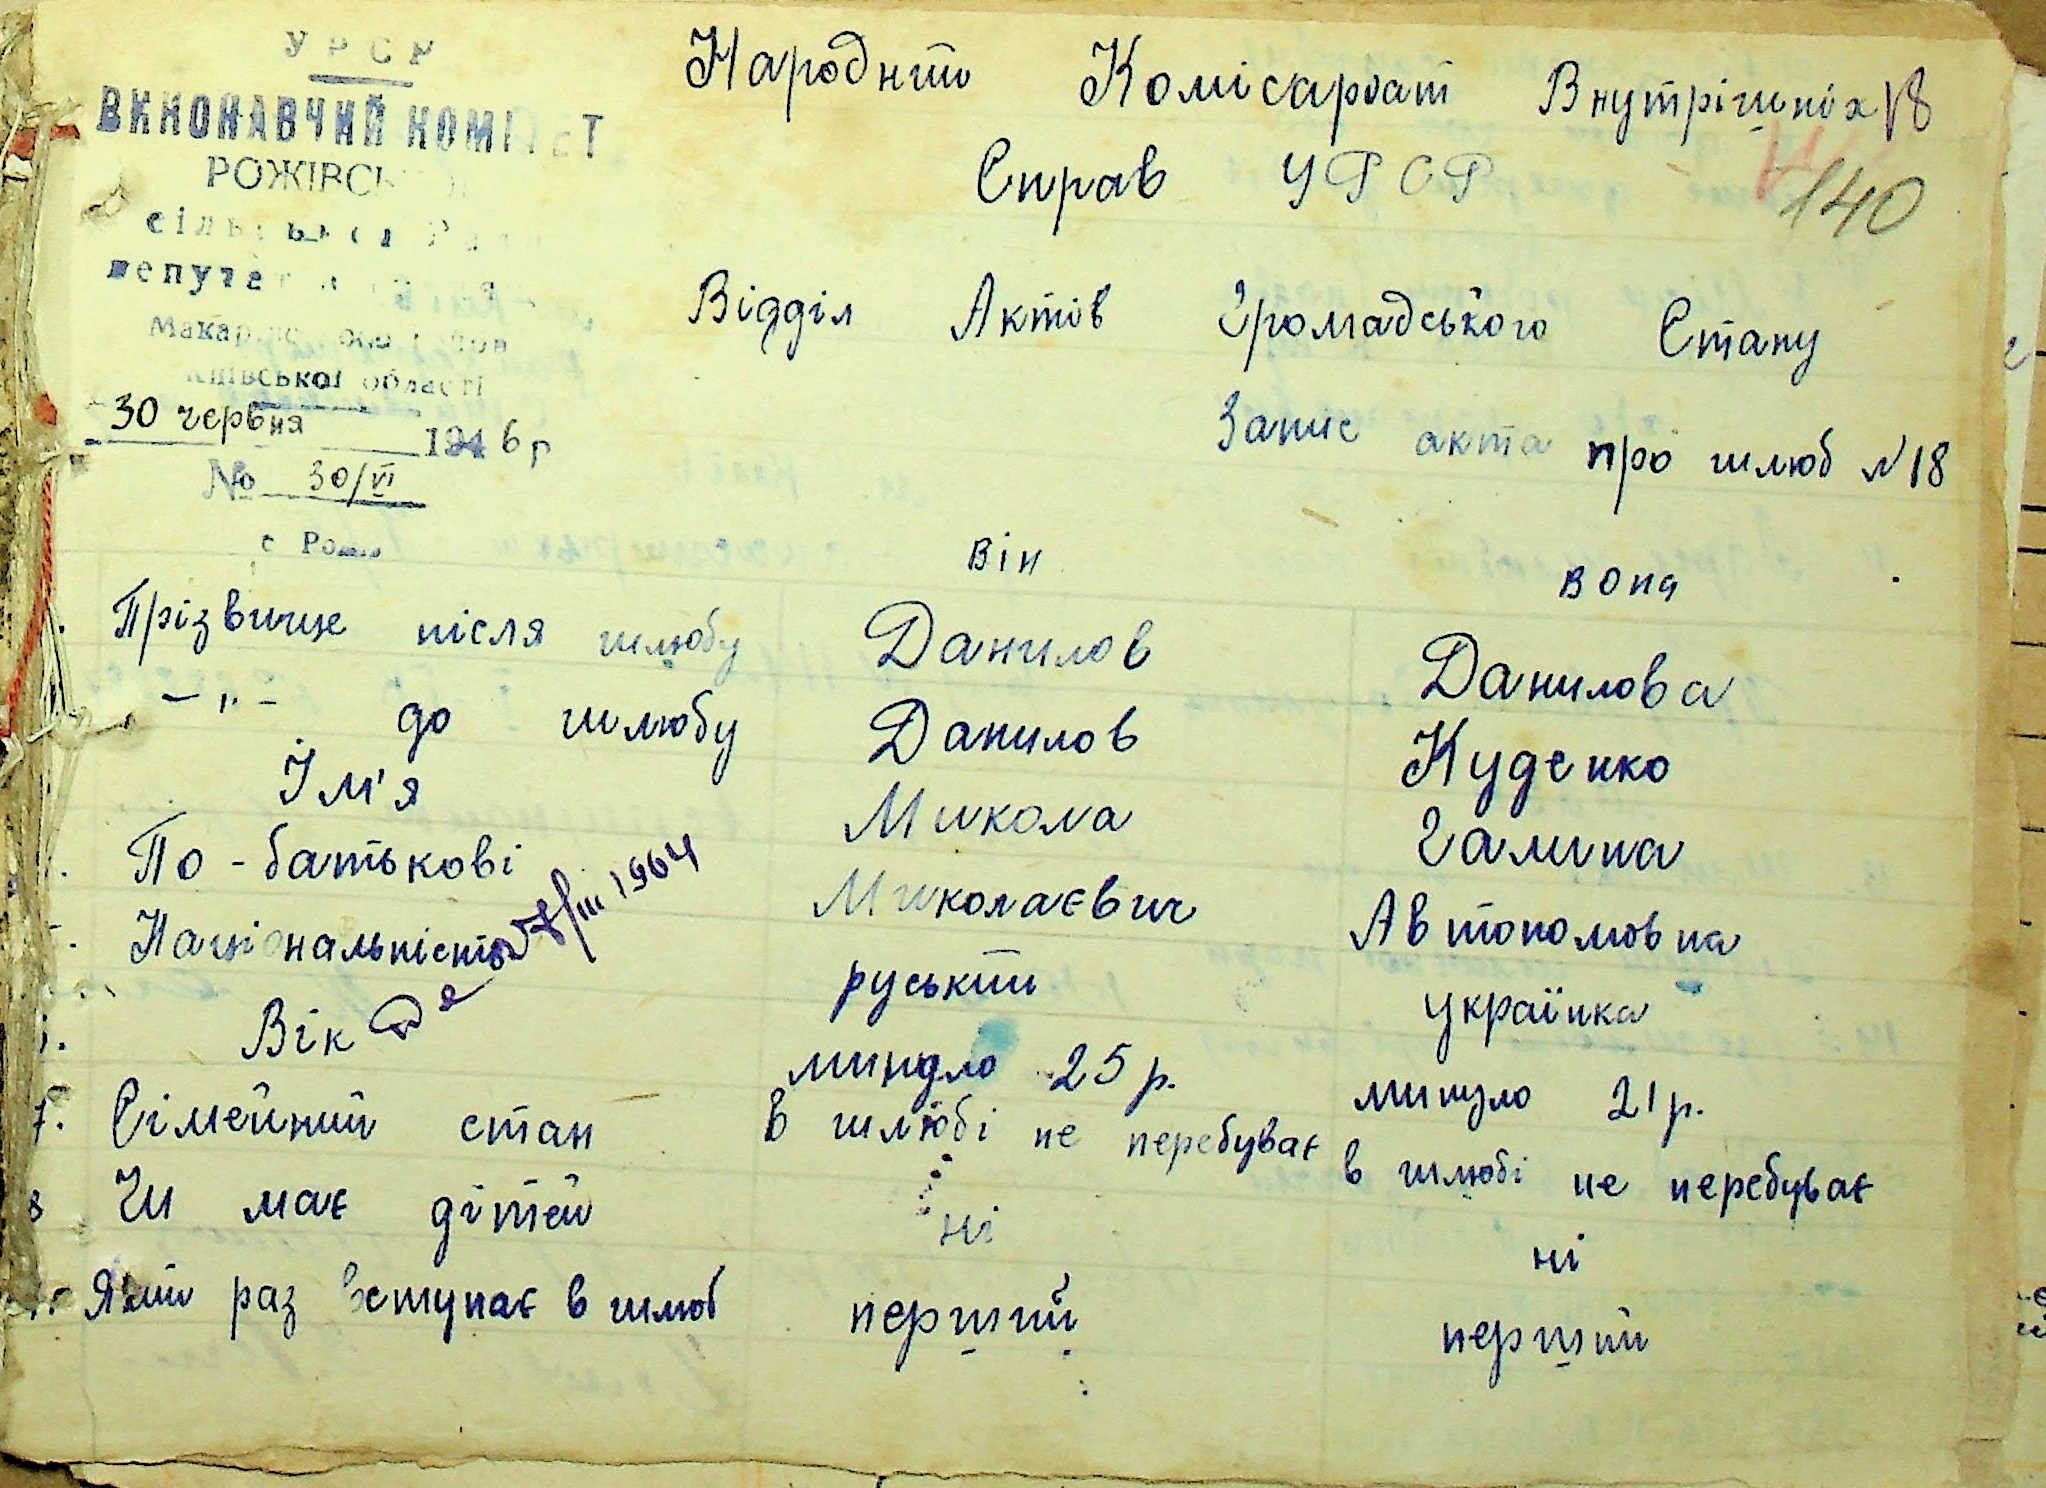 УРСР
ВИКОНАВЧИЙ КОМІТЕТ
РОЖІВСЬ
сільської Ради
депутат
Макар
Київської області
30 червня 1946 р
№ 30/VI
с Рожів
Народний Комісаріат Внутрішніх 18
Справ УРСР 140
Відділ Актів Громадського Стану
Запис акта про шлюб №18
він вона
Прізвище після шлюбу Данилов Данилова
— " — до шлюбу Данилов Куденко
Ім'я Микола Галина
По-батькові Миколаєвич Автономовна
Національність руський українка
/III 1964
Вік минуло 25 р. минуло 21 р.
7. Сімейний стан в шлюбі не перебуває в шлюбі не перебуває
8 Чи має дітей ні ні
Який раз вступає в шлюб перший перший